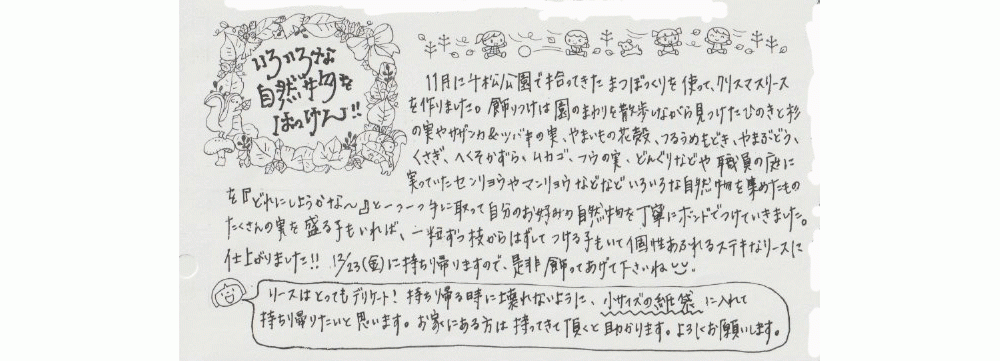 いろいろな
自然物を
はっけん!!
11月に千松公園で拾ってきたまつぼっくりを使って、クリスマスリース
を作りました。飾りつけは園のまわりを散歩しながら見つけたひのきと杉
の実やサザンカ&ツバキの実、やまいもの花殻、つるうめもどき、やまぶどう、
くさぎ、へくそかずら、ムカゴ、フウの実、どんぐりなどや職員の庭に
実っていたセンリョウやマンリョウなどなどいろいろな自然物を集めたもの
を『どれにしようかな〜♪』と一つ一つ手に取って自分のお好みの自然物を丁寧にボンドでつけていきました。
たくさんの実を盛る子もいれば、一粒ずつ枝からはずしてつける子もいて個性あふれるステキなリースに
仕上がりました!! 12/23(金)に持ち帰りますので、是非飾ってあげて下さいね
リースはとってもデリケート! 持ち帰る時に壊れないように、小サイズの紙袋に入れて
持ち帰りたいと思います。お家にある方は持ってきて頂くと助かります。よろしくお願いします。